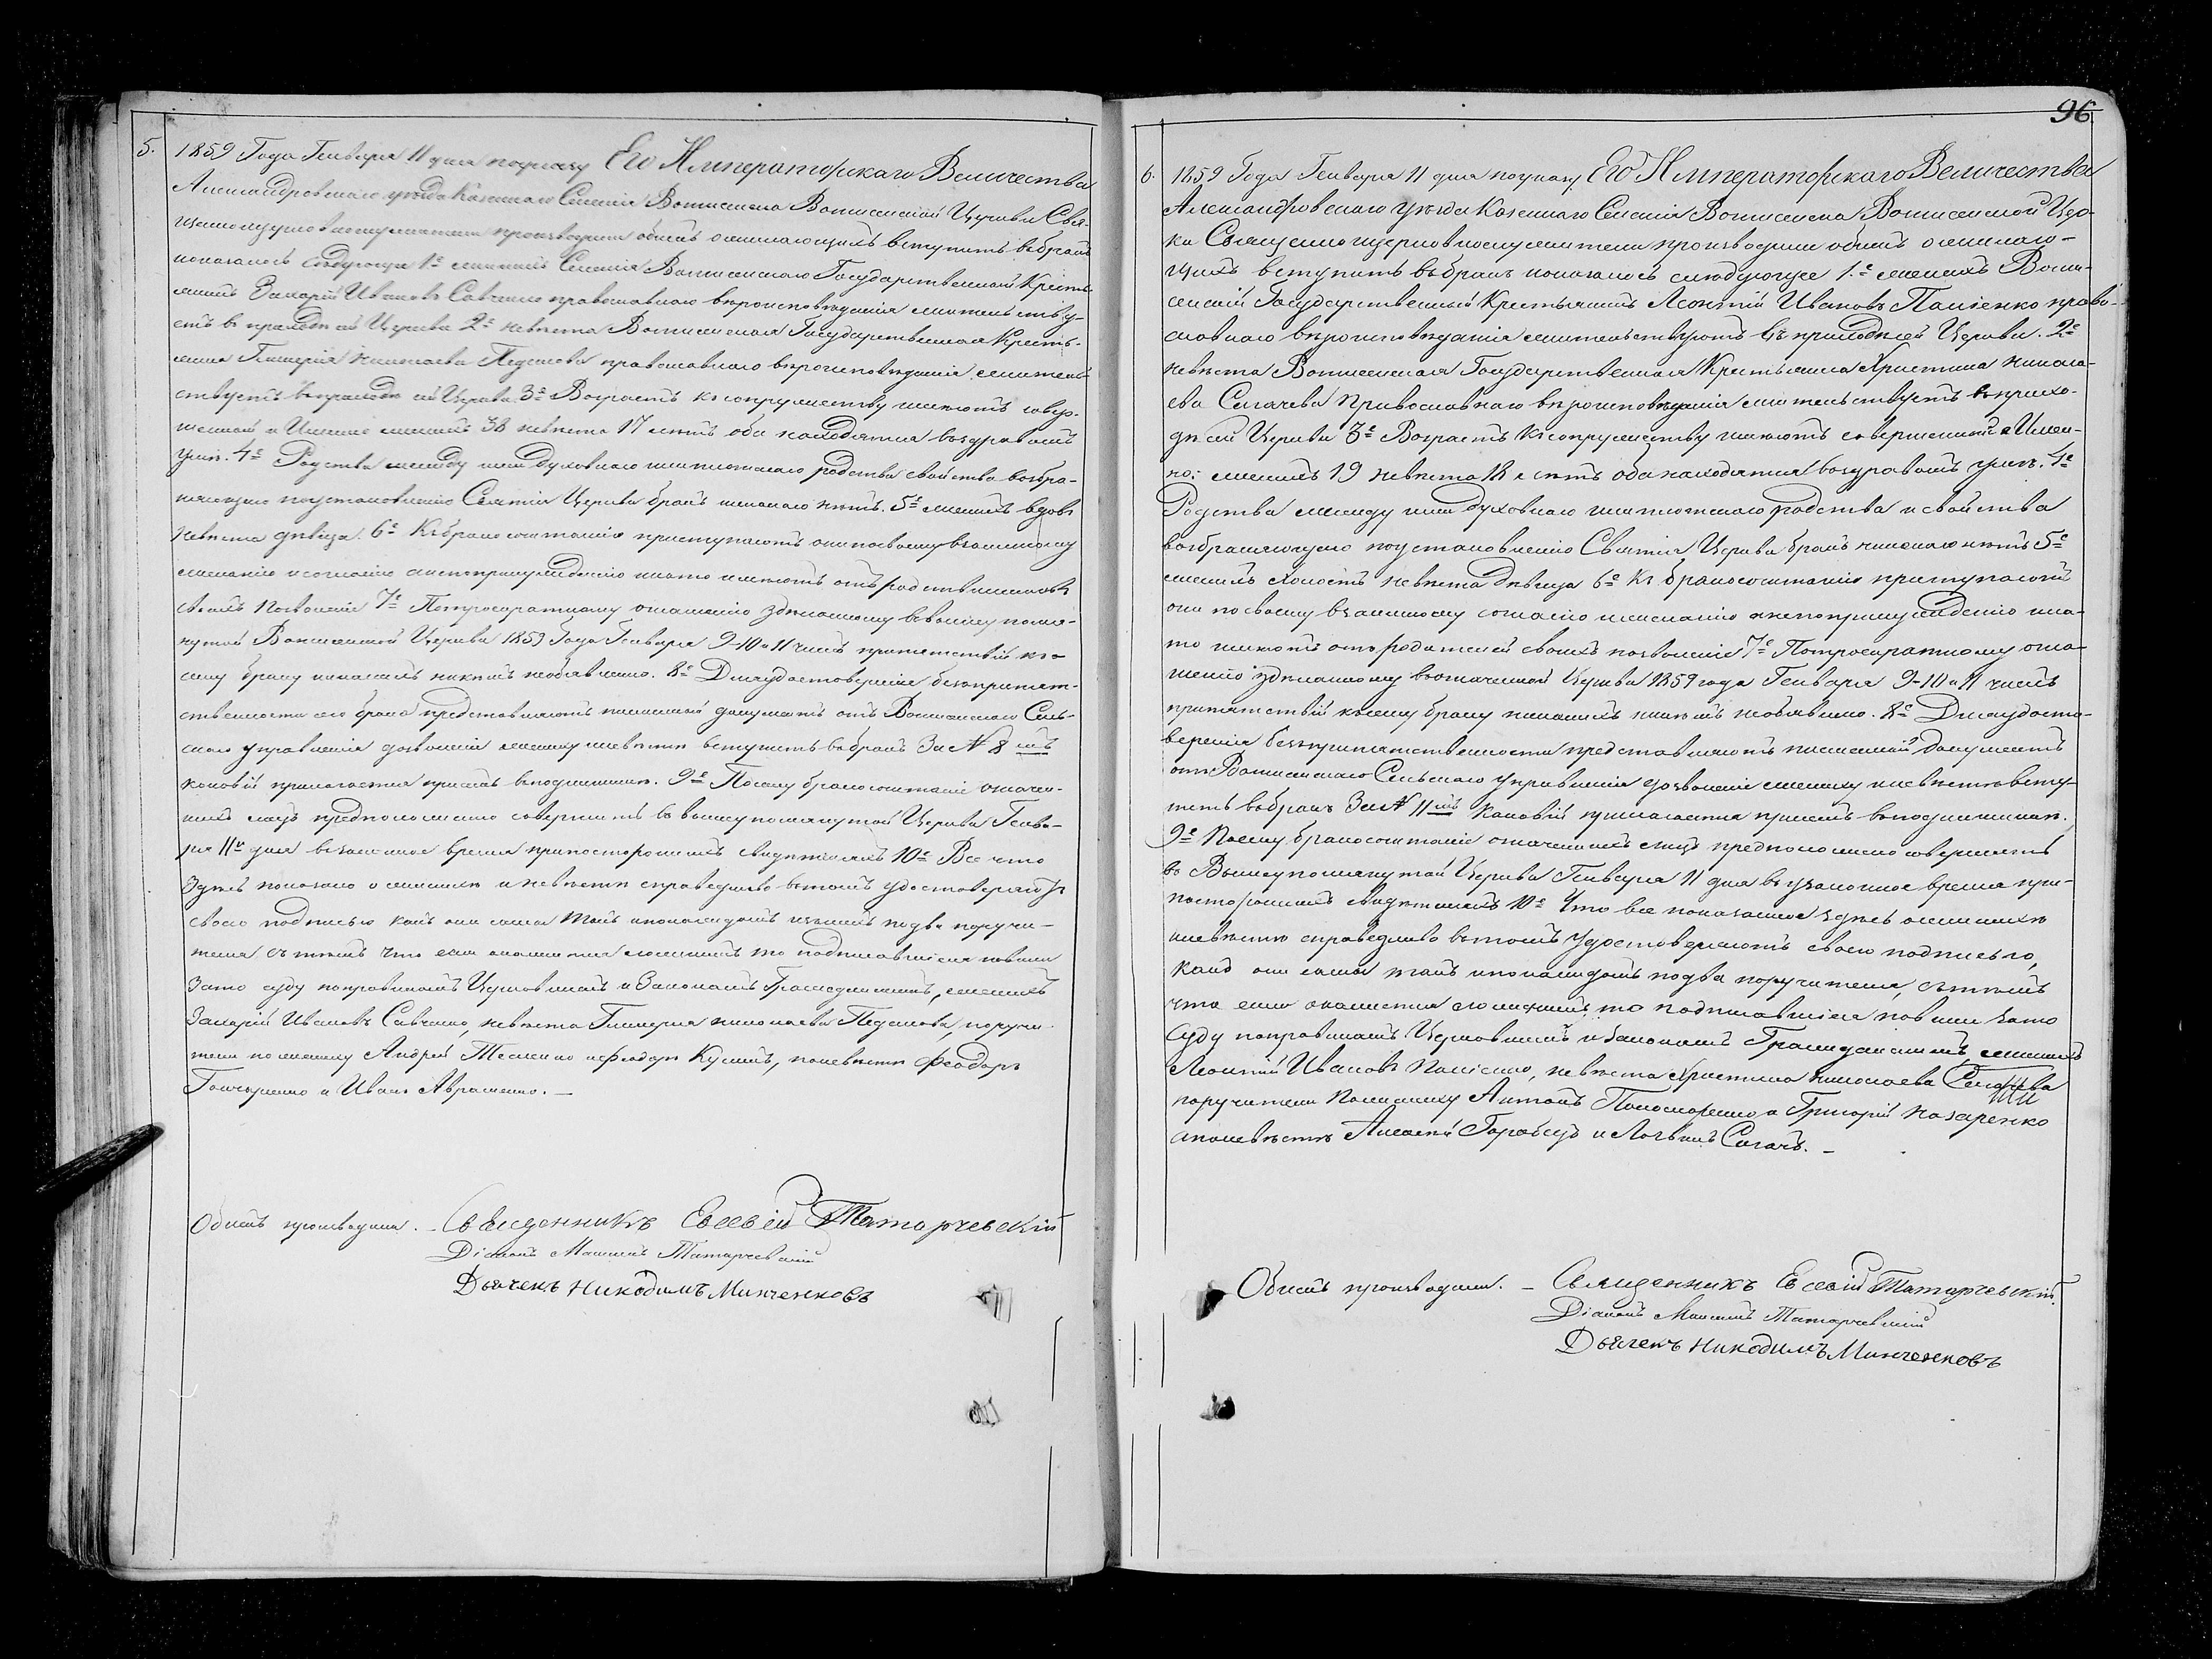 5.
1859 Года Генваря 11 дня по указу Его Императорскаго Величества
Александровскаго уезда Казеннаго Селенія Воскресенска Воскресенской Церкви Свя-
щенноцерковнослужители производили обыскъ о желающихъ вступить въ бракъ
показалось следующее 1е женихъ Селенія Государственный Кресть-
янинъ Захарій Ивановъ Савченко православнаго вѣроисповѣданія жительству-
етъ в приходѣ сей Церкви 2е невѣста Государственная Кресть-
янка Гликерія Николаева православнаго вѣроисповѣданія жительс-
ствуетъ в приходѣ сей Церкви 3е Возрастъ к сопружеству имѣютъ совер-
шенный и Именно женихъ 38 невѣста 17 лѣтъ оба находятся въ здравомъ
умѣ. 4е Родства между ими духовнаго или плотскаго родства свойства возбра-
няющаго по установленію Святія Церкви бракъ никакого нѣтъ. 5е женихъ вдовъ
невѣста дѣвица. 6е Къ бракосочетанію приступаютъ они по своему взаимному
желанію и согласію а не по принужденію на то имѣютъ отъ родственниковъ
своихъ позволеніе 7е По троекратному оглашенію здѣланному въ вышеупомя-
нутой Церкви 1859 Года Генваря 9-10 и 11 чиселъ препятствій къ
сему браку никакихъ никѣмъ необъявлено. 8е Для удостовѣренія безпрепятст-
ственности сего брака представляютъ письменной документъ отъ Сель-
скаго управленія дозволеніе жениху и невѣстѣ вступить в бракъ За № 8 мъ
каковій прилагается присемъ в подлинникѣ. 9е По сему бракосочетаніе означен-
ныхъ лицъ предположено совершить в вышеупомянутой Церкви Генва-
ря 11го дня в указанное время при постороннихъ свидѣтеляхъ 10е Все что
Здѣсь показано о женихѣ и невѣстѣ справедливо в томъ удостоверяютъ
своею подписью какъ они сами такъ и по каждомъ изъ нихъ по два поручи-
теля съ тѣмъ что если окажется ложнымъ то подписавшіеся повинни
Зато суду по правиламъ Церковнымъ и Законамъ Гражданскимъ, женихъ
Захарій Ивановъ Савченко, невѣста Гликерія Николаева поручи-
тели по женихѣ Андрей и Феодоръ по невѣстѣ Феодоръ
Гончаренко и Иванъ Авраменко. —
Обыскъ производили. — Священникъ Евсевій Татарчевскій
Діаконъ Максимъ Татарчевскій
Дьячекъ Никодимъ Минченковъ
96.
6.
1859 Года Генваря 11 дня по указу Его Императорскаго Величества
Александровскаго уезда Казеннаго Селенія Воскресенска Воскресенской Церк-
ви Священноцерковнослужители производили обыскъ о желаю-
щихъ вступить въ бракъ показалось слѣдующее 1.е женихъ
Государственный Крестьянинъ Леонтій Ивановъ право-
славнаго вѣроисповѣданія жительствуютъ въ приходѣ сей Церкви. 2е
невѣста Государственная Крестьянка Христина Никола-
ева Сигачева Православнаго вѣроисповѣданія жительствуетъ въ прихо-
дѣ сей Церкви 3е Возрастъ къ сопружеству имѣютъ совершенный Имен-
но: женихъ 19 невѣста 18 лѣтъ оба находятся въ здравомъ умѣ. 4е
Родства между ими духовнаго или плотскаго родства и свойства
возбраняющаго по установленію Святія Церкви бракъ никакого нѣтъ 5е
женихъ холостъ невѣста дѣвица 6е Къ бракосочетанію приступаютъ
они по своему взаимному согласію и желанію а не по принужденію и на
то имѣютъ отъ родителей своихъ позволеніе 7е По троекратному огла-
шенію здѣланному въ означенной Церкви 1859 года Генваря 9-10 и 11 чиселъ
препятствій къ сему браку никакихъ никѣмъ необъявлено. 8е Для удосто-
веренія безпрепятственности представляютъ письменной документъ
отъ Сельскаго Управленія дозволеніе жениху и невѣстѣ всту-
пить въ бракъ За № 11 мъ каковій прилагается присемъ в подлинникѣ.
9е По сему бракосочетаніе означенныхъ лицъ предположено совершить
в Вышеупомянутой Церкви Генваря 11 дня в указанное время при
постороннихъ свидѣтеляхъ 10е Что все показанное здѣсь о женихѣ
и невѣстѣ справедливо въ томъ удостоверяютъ своею подписью,
какъ они сами такъ и по каждомъ по два поручителя, съ тѣмъ
что если окажется ложнымъ то подписавшіеся повинни зато
Суду по правиламъ Церковнымъ и законамъ Гражданскимъ, женихъ
Леонтій Ивановъ невѣста Христина Николаева Сигачева
поручители по женихѣ Антонъ и Григорій Назаренко
а по невѣстѣ Алексій Горобецъ и Логвинъ Сигачъ. —
Обыскъ производили. — Священникъ Евсевій Татарчевскій.
Діаконъ Максимъ Татарчевскій
Дьячекъ Никодимъ Минченковъ